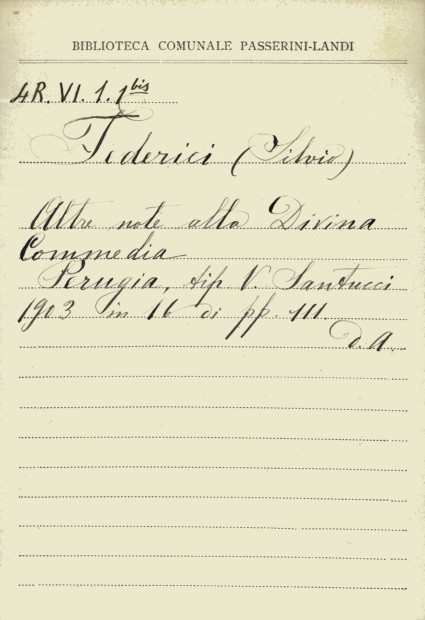 BIBLIOTECA COMUNALE PASSERINI-LANDI
4R. VI. 1. 1bis
Federici (Silvio)
Altre note alla Divina
Commedia
Perugia, tip V. Santucci
1903 in 16 di pp. 111.
d. A.